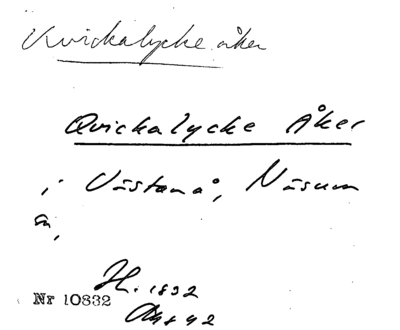 Kvickalycke åker
Qvickalycke Åker
i Västanå, Näsum
sn,
H. 1832
Nr 10832